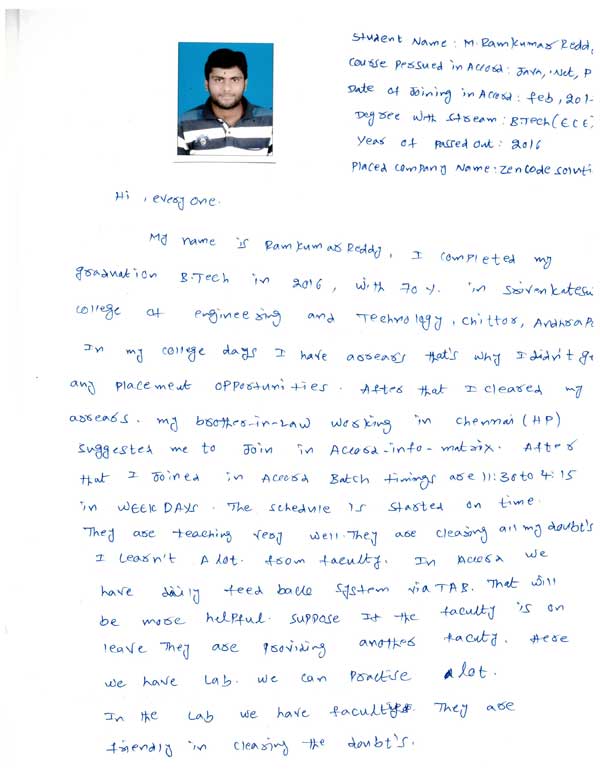 Student Name : M. Ramkumar Reddy
Course Persued in Accord : Java, .Net, P
Date of Joining in Accord : Feb, 201
Degree with Stream : B.Tech (ECE)
Year of Passed out : 2016
Placed Company Name : Zencode soluti
Hi , every one.
My name is RamkumarReddy, I completed my
graduation B.Tech in 2016, with 70 %. in Srivenkatesw
college of engineering and Technology, chittor, AndhraP
In my college days I have arrears that's why I didn't ge
any placement opportunities. After that I cleared my
arrears. my brother-in-Law working in chennai (HP)
suggested me to Join in Accord-info-matrix. After
that I Joined in Accord Batch timings are 11:30 to 4:15
in WEEK DAYS. The schedule is started on time.
They are teaching very well. They are clearing all my doubt's
I Learn't A lot. from faculty. In Accord we
have daily feed back system via TAB. That will
be more helpful. suppose If the faculty is on
leave They are providing another facuty. Here
we have Lab. we can practise a lot.
In the Lab we have faculty. They are
friendly in clearing the doubt's.